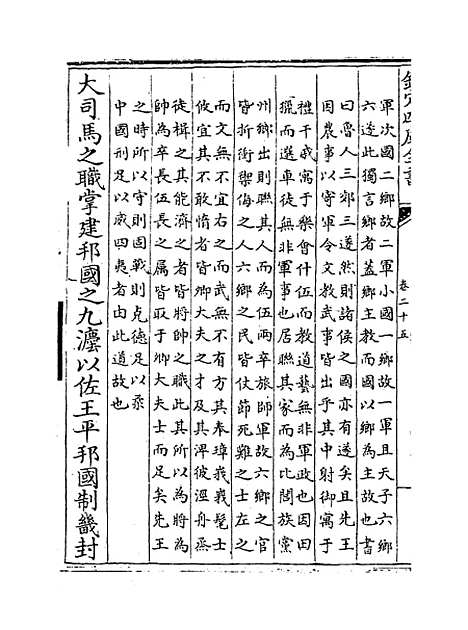 欽定四庫全書
卷二十五
軍次國二鄉故二軍小國一鄉故一軍且天子六鄉
六遂此獨言鄉者蓋鄉主教而國以鄉為主故也書
曰魯人三郊三遂然則諸侯之國亦有遂矣且先王
因農事以寄軍令文教武事皆出乎其中射御寓于
禮干戚寓于樂會什伍而教道藝無非軍政也因田
獵而選車徒無非軍事也居聯其家而為比閭族黨
州鄉出則聯其人而為伍兩卒旅師軍故六鄉之官
皆折衝禦侮之人六鄉之民皆仗節死難之士左之
而文無不宜右之而武無不有方其奉璋峩峩髦士
攸宜其不敢惰者皆卿大夫之才及其淠彼涇舟烝
徒楫之其能濟之者皆將帥之職此其所以為將為
帥為卒長伍長之屬皆取于卿大夫士而足矣先王
之時所以守則固戰則克德足以柔
中國刑足以威四夷者由此道故也
大司馬之職掌建邦國之九灋以佐王平邦國制畿封